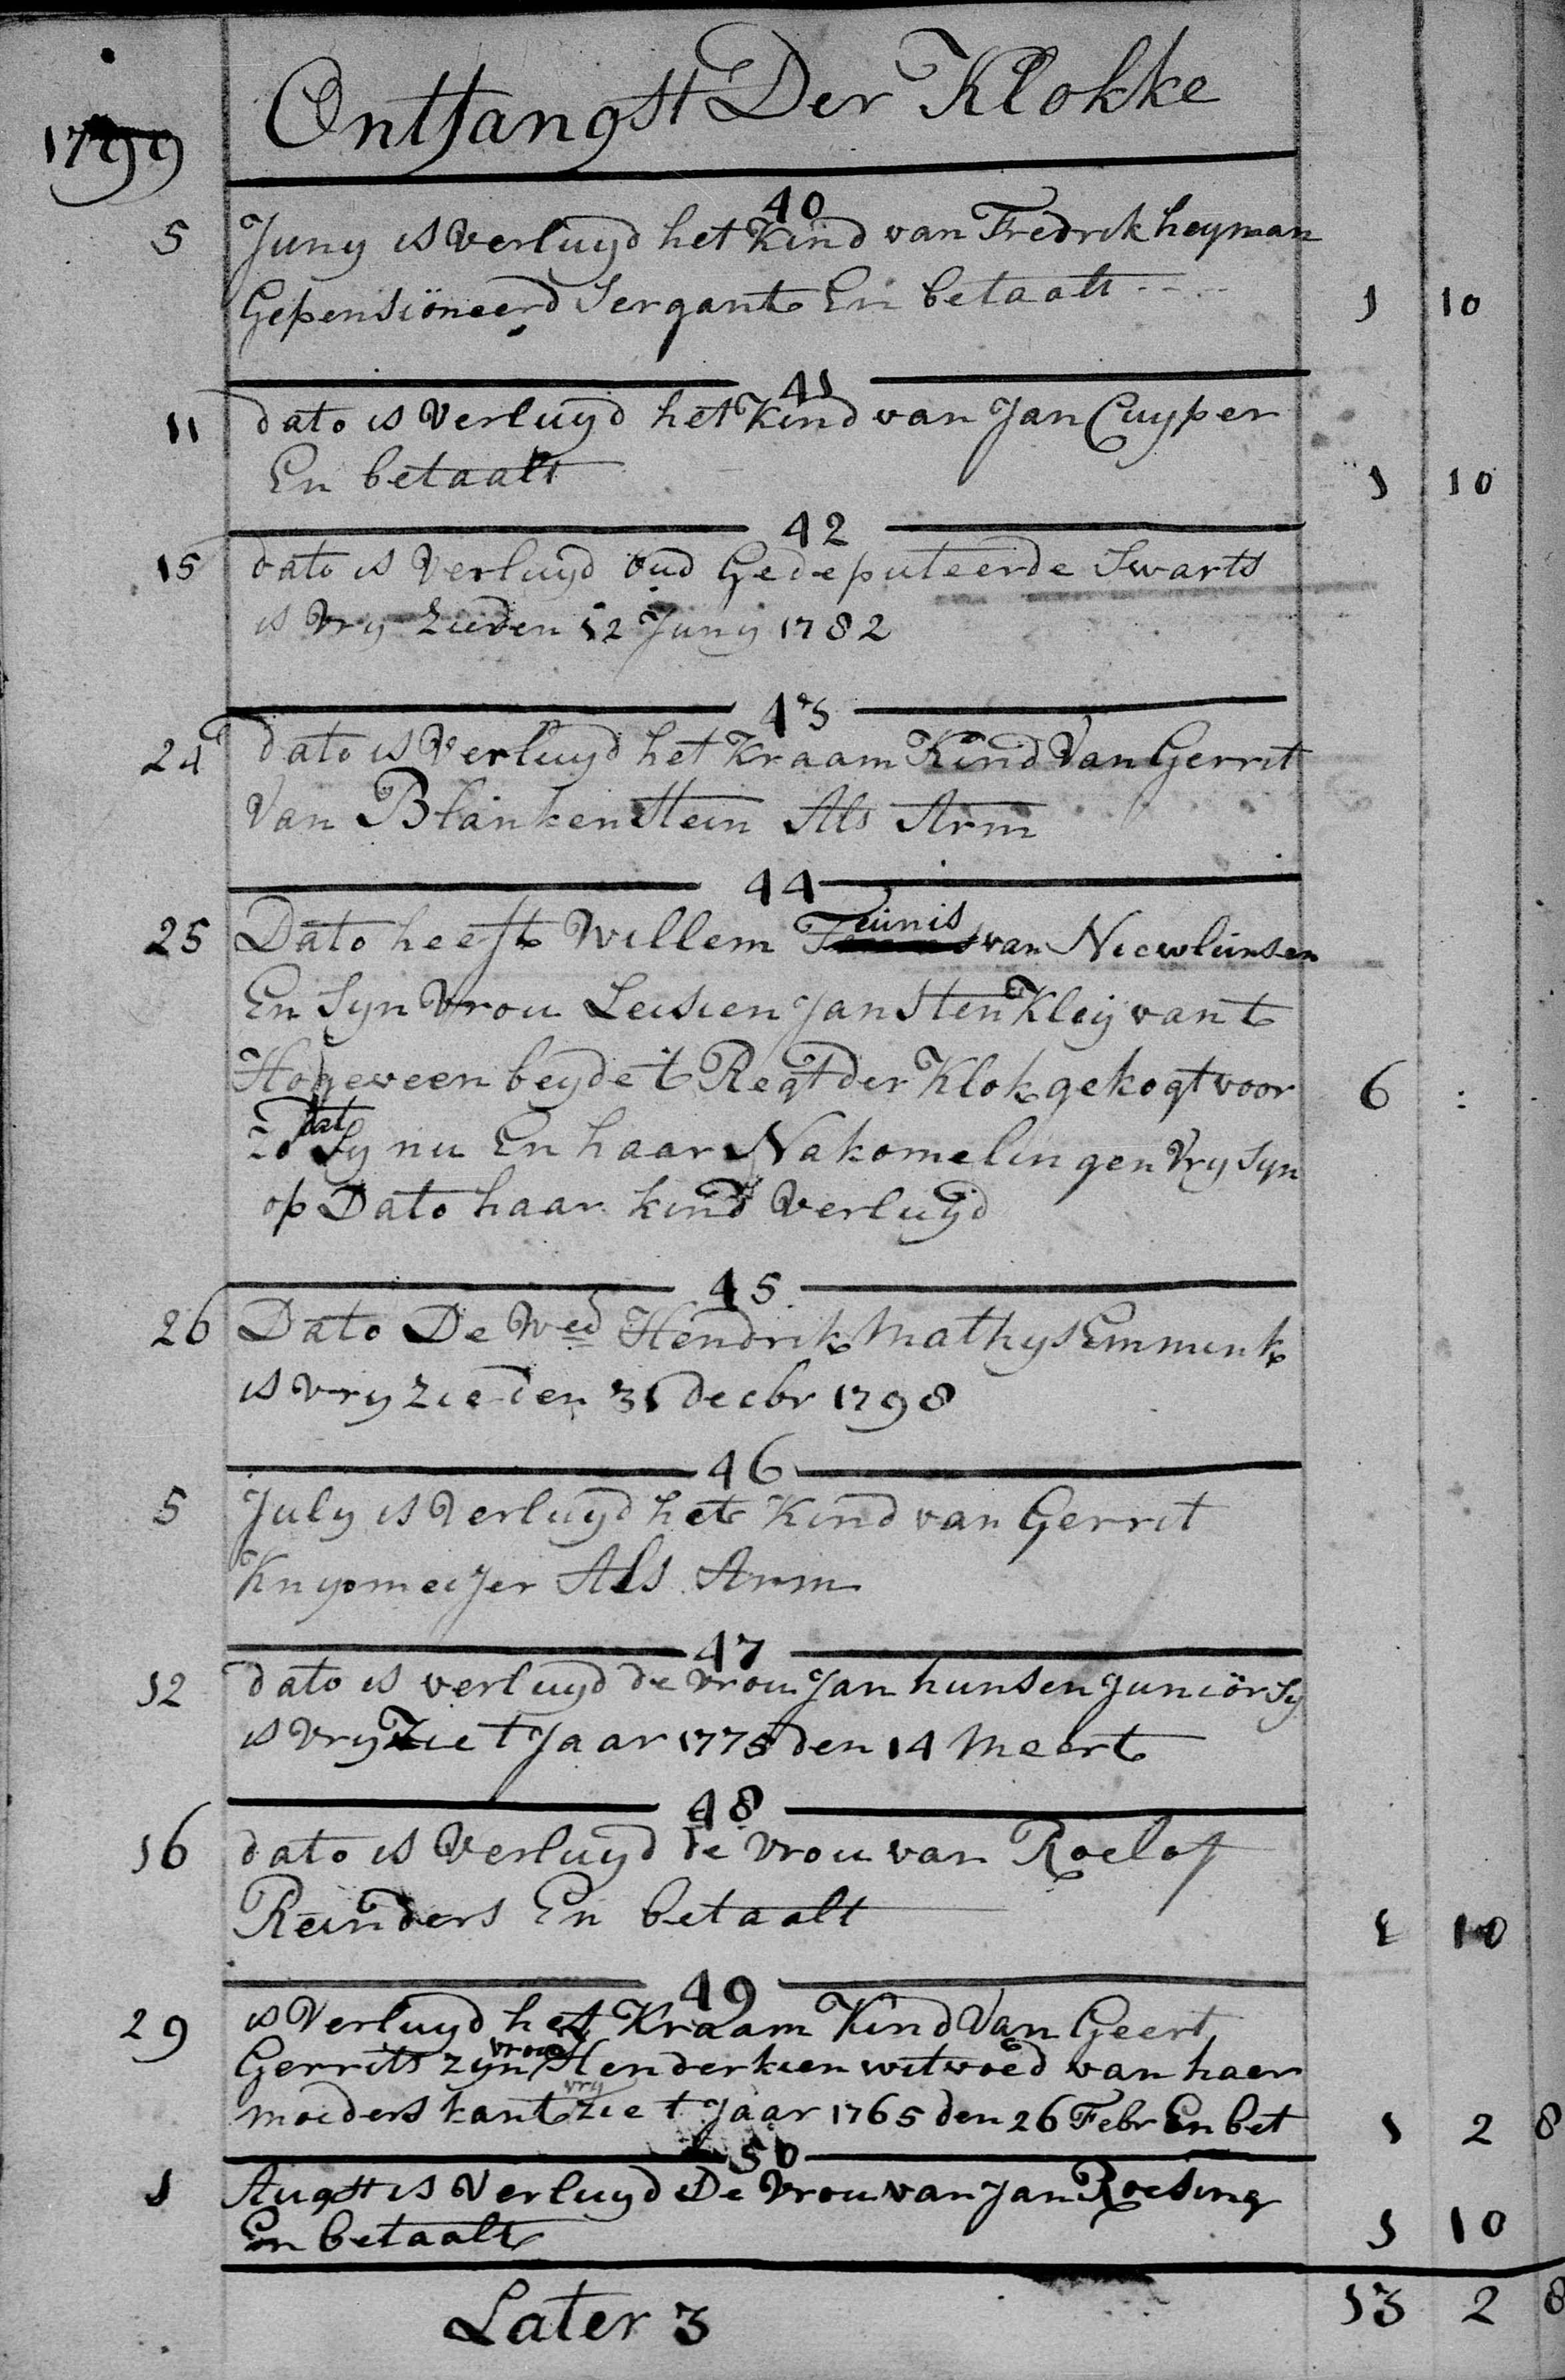 Ontfangst Der Klokke
1799
40
5 Juny is verluyd het Kind van Fredrik heyman
Gepensiöneerd Sergant En betaalt 1 10
41
11 dato is Verluyd het Kind van Jan Cuyper
En betaalt 1 10
42
15 dato is Verluyd oud Gedeputeerde Swarts
is Vry Zie den 12 Juny 1782
43
24 dato is Verluyd het Kraam Kind Van Gerrit
Van Blankenstein Als Arm
44
25 Dato heeft Willem Teunis van Niewlunsen
En Syn Vrou Leisien Jans ten Kleij van t
Hogeveen beyde t Regt der Klok gekogt voor 6 :
Zo dat Sy nu En haar Nakomelingen Vry Syn
op Dato haar kind Verluyd
45
26 Dato De Wed Hendrik Mathys Emmink
is vry zie den 31 decbr 1798
46
5 July is Verluyd het Kind van Gerrit
Knypmeijer Als Arm
47
12 dato is verluyd de vrou Jan hunsen Juniör Sy
is Vry Zie t Jaar 1775 den 14 Meert
48
16 dato is Verluyd de vrou van Roelof
Reinders En betaalt 1 10
49
29 is Verluyd het Kraam Kind Van Geert
Gerrits zyn vrou Henderkien witvoed van haer
moeders kant vry zie t Jaar 1765 den 26 Febr En bet 1 2 8
50
1 Augst is Verluyd De Vrou van Jan Roesing
En betaalt 1 10
Later 3 13 2 8